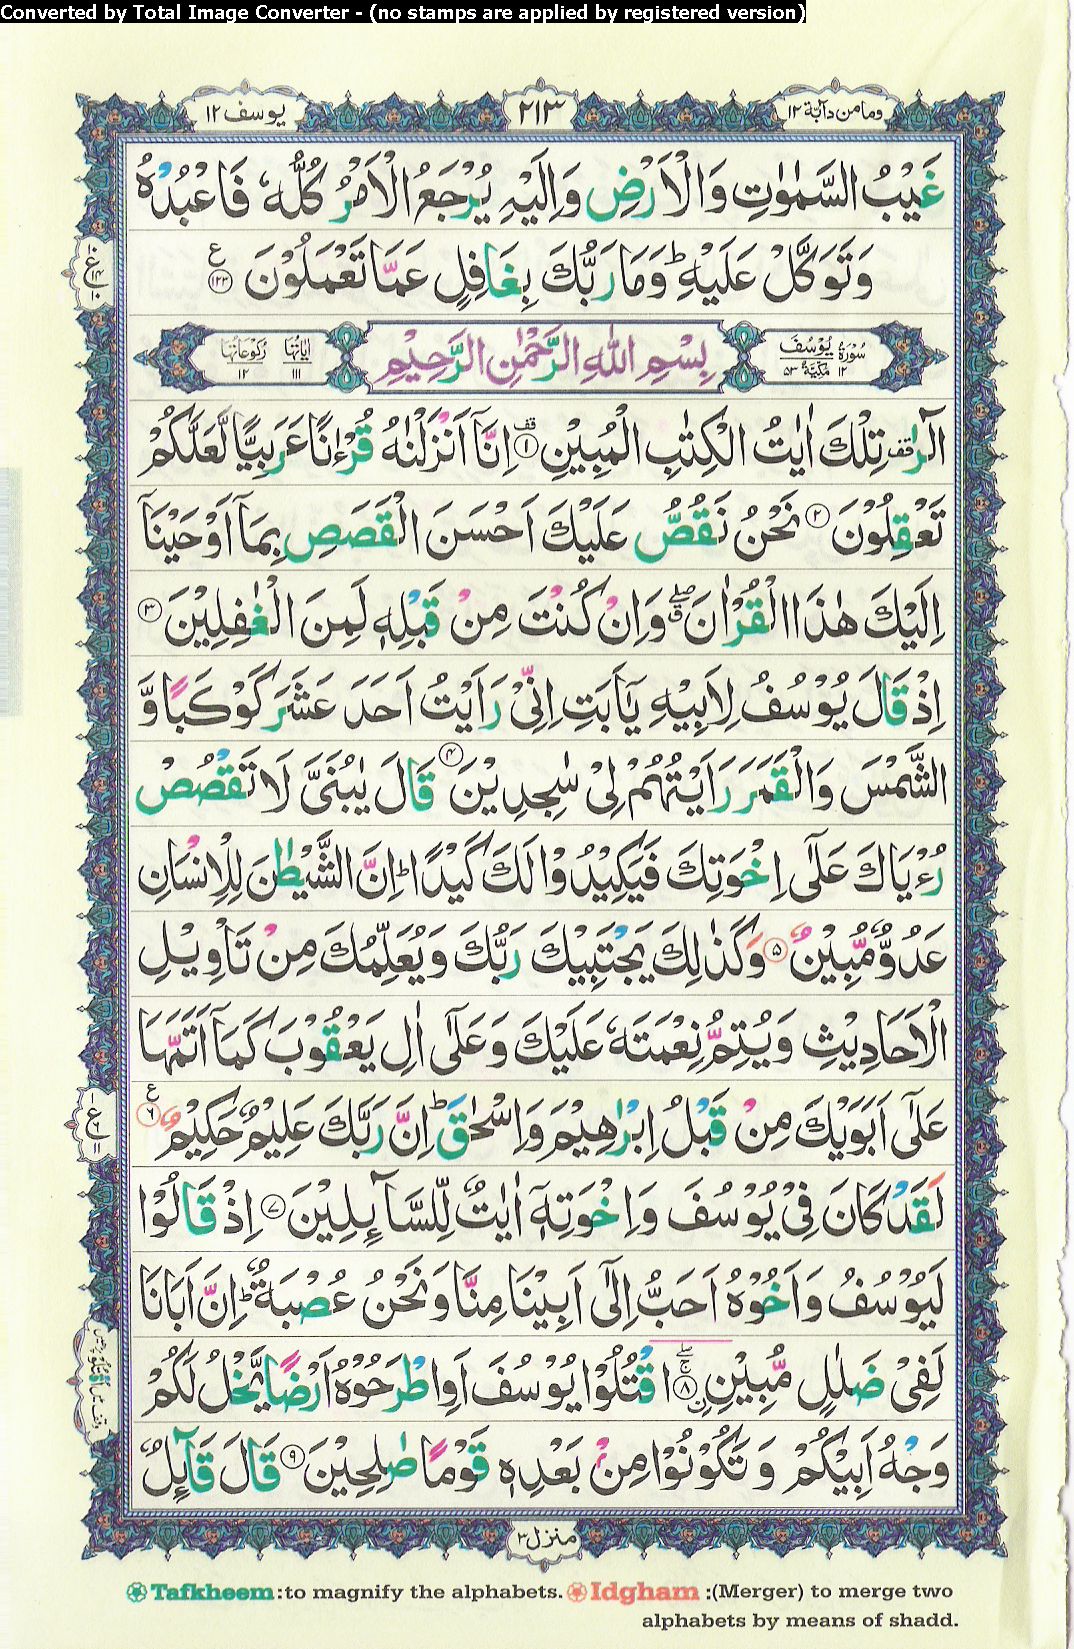 Converted by Total Image Converter - (no stamps are applied by registered version)
وما من دآبّة ١٢
٢١٣
يوسف ١٢
غَيْبُ السَّمٰوٰتِ وَالْاَرْضِ وَاِلَيْهِ يُرْجَعُ الْاَمْرُ كُلُّهٗ فَاعْبُدْهُ
وَتَوَكَّلْ عَلَيْهِ ؕ وَمَا رَبُّكَ بِغَافِلٍ عَمَّا تَعْمَلُوْنَ ﴿۱۲۳﴾ ع
سُوْرَةُ يُوْسُفَ ١٢ مَكِّيَّةٌ ٥٣
بِسْمِ اللّٰهِ الرَّحْمٰنِ الرَّحِيْمِ
اٰيَاتُهَا ١١١ رُكُوْعَاتُهَا ١٢
الٓرٰ ۟ تِلْكَ اٰيٰتُ الْكِتٰبِ الْمُبِيْنِ ﴿۱﴾ اِنَّاۤ اَنْزَلْنٰهُ قُرْءٰنًا عَرَبِيًّا لَّعَلَّكُمْ
تَعْقِلُوْنَ ﴿۲﴾ نَحْنُ نَقُصُّ عَلَيْكَ اَحْسَنَ الْقَصَصِ بِمَاۤ اَوْحَيْنَاۤ
اِلَيْكَ هٰذَا الْقُرْاٰنَ ۖ وَاِنْ كُنْتَ مِنْ قَبْلِهٖ لَمِنَ الْغٰفِلِيْنَ ﴿۳﴾
اِذْ قَالَ يُوْسُفُ لِاَبِيْهِ يٰۤاَبَتِ اِنِّيْ رَاَيْتُ اَحَدَ عَشَرَ كَوْكَبًا وَّ
الشَّمْسَ وَالْقَمَرَ رَاَيْتُهُمْ لِيْ سٰجِدِيْنَ ﴿۴﴾ قَالَ يٰبُنَيَّ لَا تَقْصُصْ
رُءْيَاكَ عَلٰۤى اِخْوَتِكَ فَيَكِيْدُوْا لَكَ كَيْدًا ؕ اِنَّ الشَّيْطٰنَ لِلْاِنْسَانِ
عَدُوٌّ مُّبِيْنٌ ﴿۵﴾ وَكَذٰلِكَ يَجْتَبِيْكَ رَبُّكَ وَيُعَلِّمُكَ مِنْ تَاْوِيْلِ
الْاَحَادِيْثِ وَيُتِمُّ نِعْمَتَهٗ عَلَيْكَ وَعَلٰۤى اٰلِ يَعْقُوْبَ كَمَاۤ اَتَمَّهَا
عَلٰۤى اَبَوَيْكَ مِنْ قَبْلُ اِبْرٰهِيْمَ وَاِسْحٰقَ ؕ اِنَّ رَبَّكَ عَلِيْمٌ حَكِيْمٌ ﴿۶﴾ ع
لَقَدْ كَانَ فِيْ يُوْسُفَ وَاِخْوَتِهٖۤ اٰيٰتٌ لِّلسَّآئِلِيْنَ ﴿۷﴾ اِذْ قَالُوْا
لَيُوْسُفُ وَاَخُوْهُ اَحَبُّ اِلٰۤى اَبِيْنَا مِنَّا وَنَحْنُ عُصْبَةٌ ؕ اِنَّ اَبَانَا
لَفِيْ ضَلٰلٍ مُّبِيْنِ ﴿۸﴾ اۨقْتُلُوْا يُوْسُفَ اَوِ اطْرَحُوْهُ اَرْضًا يَّخْلُ لَكُمْ
وَجْهُ اَبِيْكُمْ وَتَكُوْنُوْا مِنْ بَعْدِهٖ قَوْمًا صٰلِحِيْنَ ﴿۹﴾ قَالَ قَآئِلٌ
منزل ٣
Tafkheem :to magnify the alphabets. Idgham :(Merger) to merge two
alphabets by means of shadd.